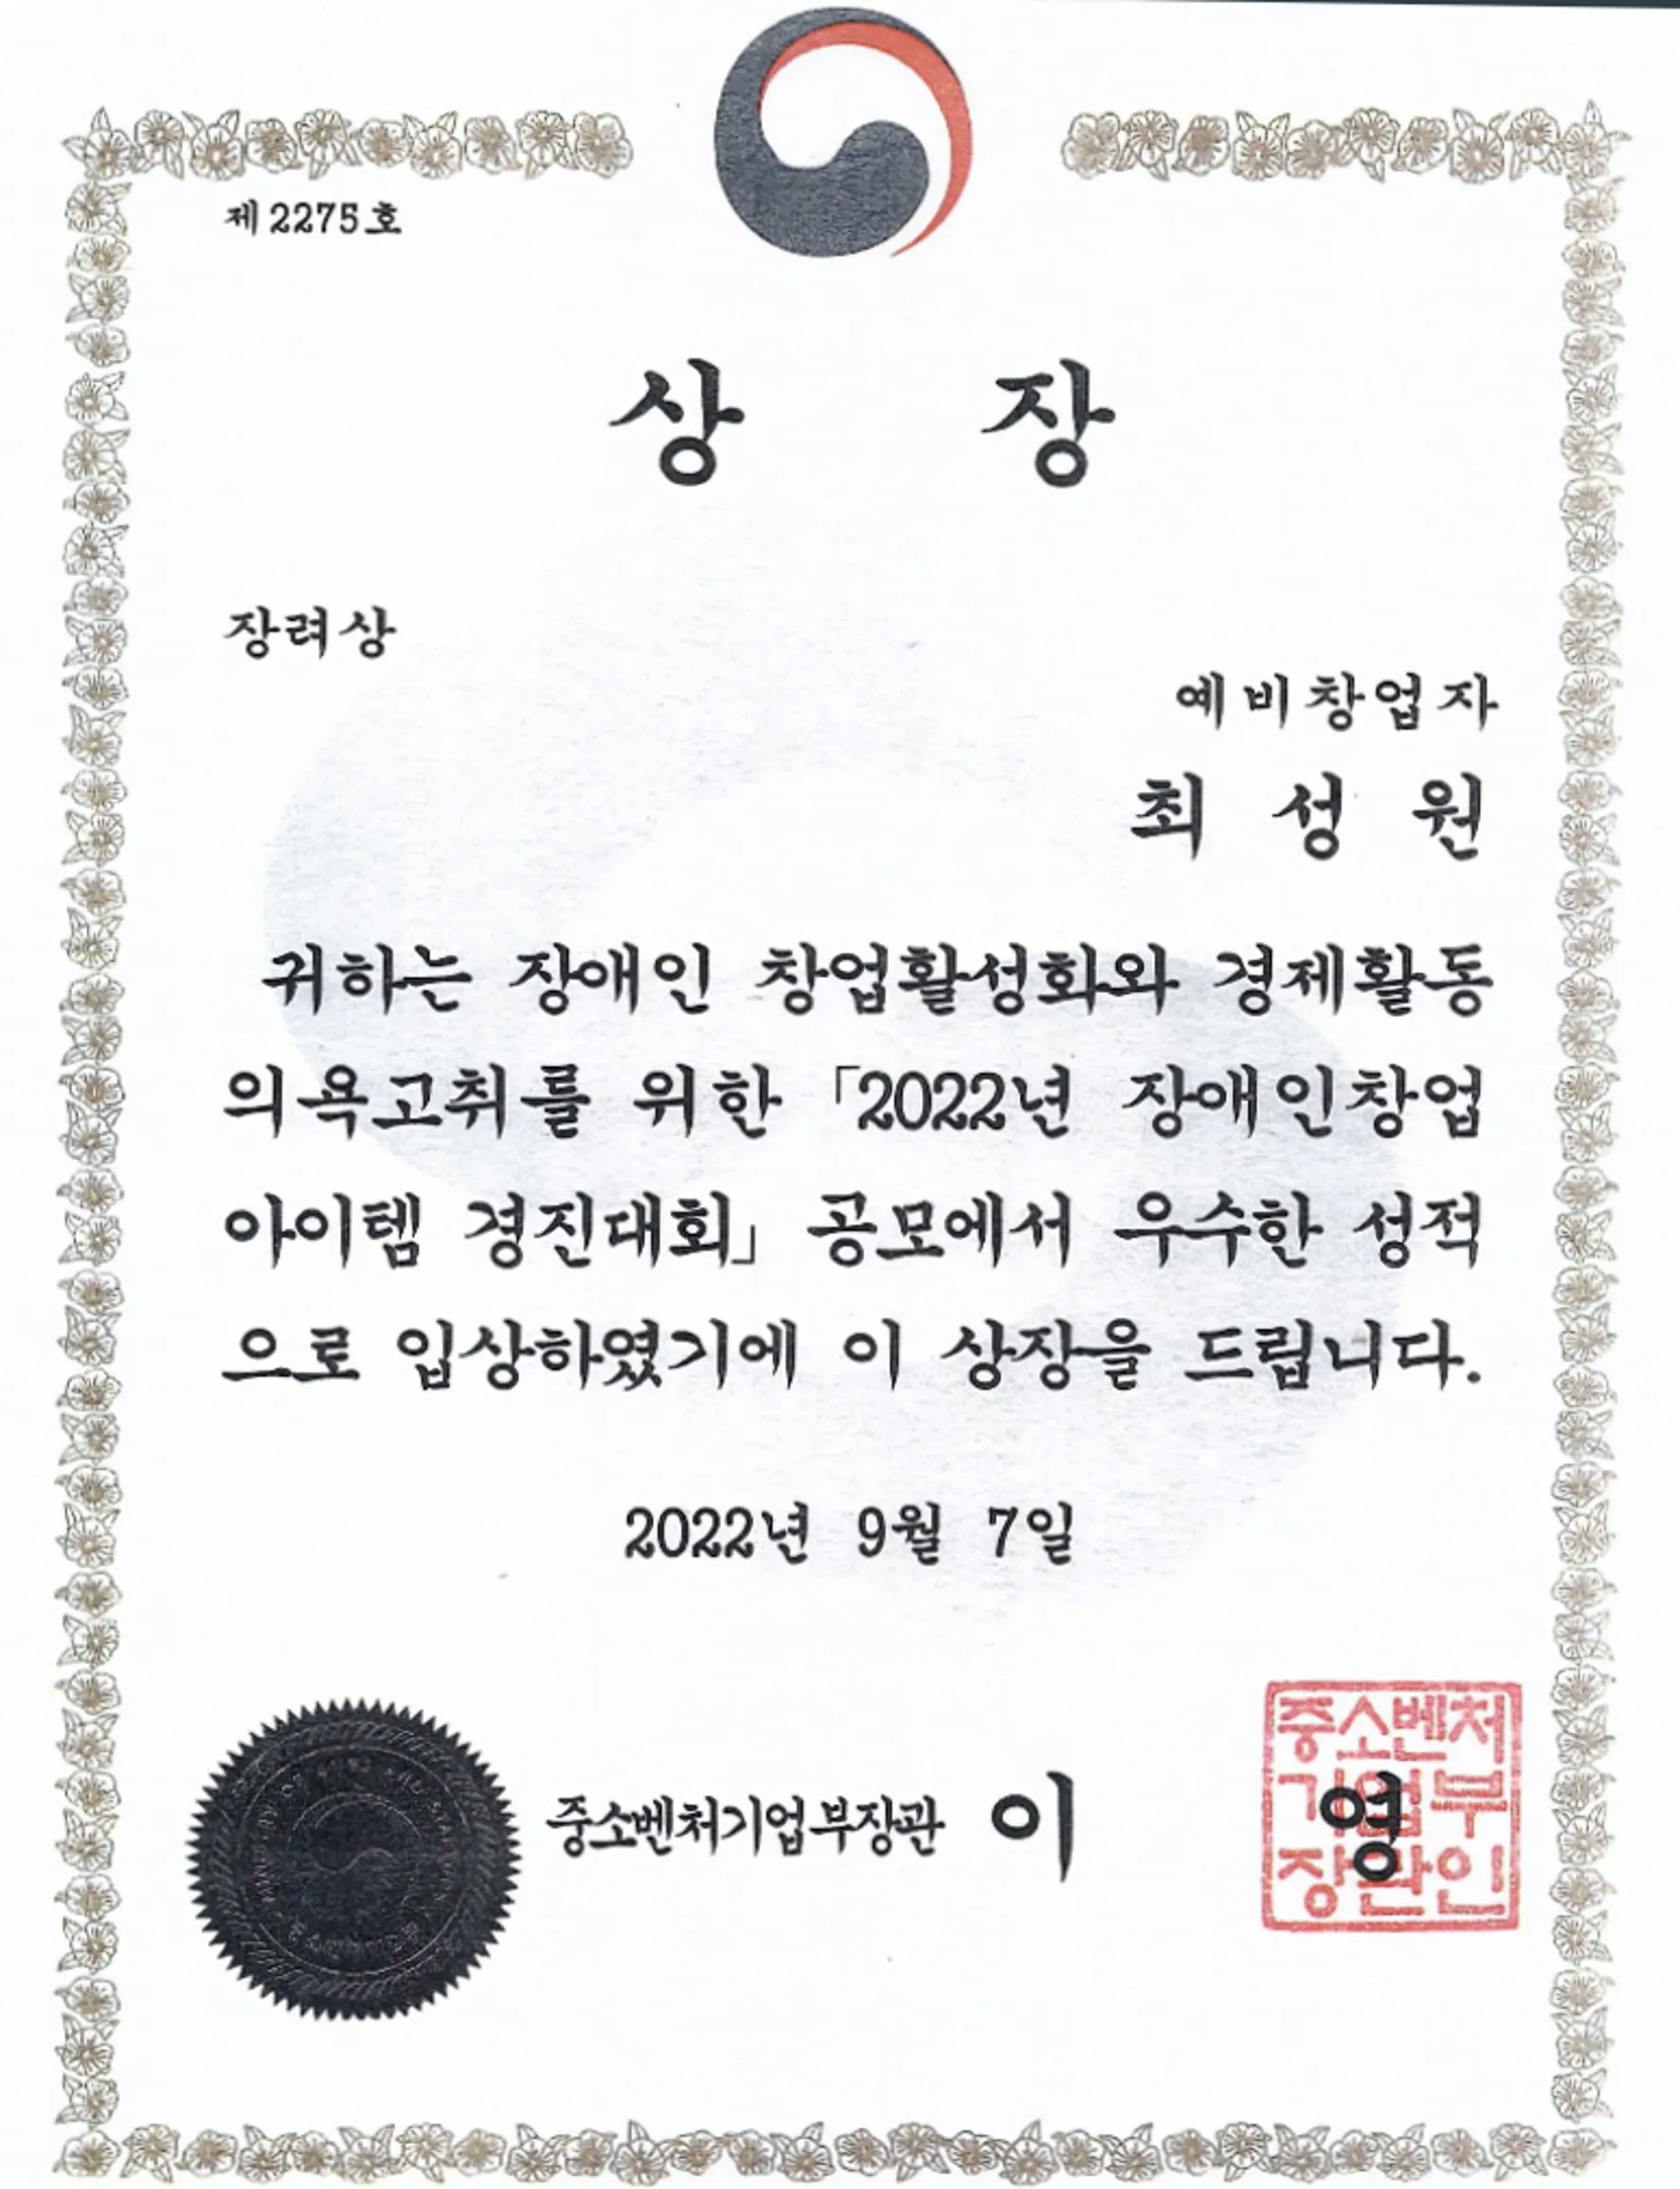 제 2275 호
상 장
장려상
예비창업자
최 성 원
귀하는 장애인 창업활성화와 경제활동
의욕고취를 위한 「2022년 장애인창업
아이템 경진대회」 공모에서 우수한 성적
으로 입상하였기에 이 상장을 드립니다.
2022년 9월 7일
중소벤처기업부장관 이 영
중소벤처
기업부
장관인